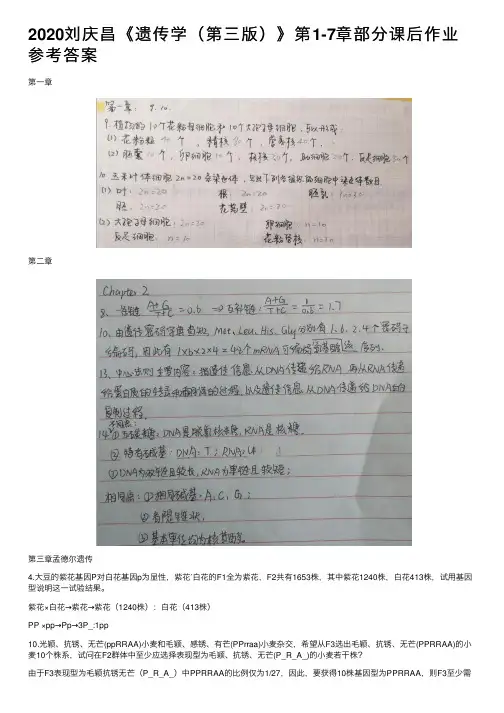 2020刘庆昌《遗传学（第三版）》第1-7章部分课后作业
参考答案
第一章
第一章: 9. 10.
9. 植物的10个花粉母细胞和10个大孢子母细胞, 可以形成:
(1) 花粉粒 40 个, 精核 80 个, 营养核 40 个,
(2) 胚囊 10 个, 卵细胞 10 个, 极核 20 个, 助细胞 20 个, 反足细胞 30 个
10. 玉米叶体细胞 2n=20 条染色体, 写出下列各组织的细胞中染色体数目
(1) 叶: 2n=20 根: 2n=20 胚乳: 3n=30
胚: 2n=20 花药壁: 2n=20
(2) 大孢子母细胞: 2n=20 卵细胞 n=10
反足细胞: n=10 花粉管核: n=10
第二章
Chapter 2
8、一条链 A+G/T+C = 0.6 ⇒ 互补链: A+G/T+C = 1/0.6 = 1.7
10、由遗传密码字典查知, Met、Leu、His、Gly分别有 1、6、2、4 个密码子
编码, 因此有 1×6×2×4=48个mRNA可编码
13、中心法则主要内容: 指遗传信息从DNA传递给RNA, 再从RNA传递
给蛋白质的转录和翻译的过程, 以及遗传信息从DNA传递给DNA的
复制过程.
14. 不同点: ① 五碳糖: DNA是脱氧核糖, RNA是核糖.
② 特有碱基: DNA: T; RNA: U
③ DNA为双链且较长, RNA为单链且较短;
相同点: ① 相同碱基: A、C、G;
② 呈链状,
③ 基本单位均为核苷酸.
第三章孟德尔遗传
4.大豆的紫花基因P对白花基因p为显性，紫花´白花的F1全为紫花，F2共有1653株，其中紫花1240株，白花413株，试用基因
型说明这一试验结果。
紫花×白花→紫花→紫花（1240株）：白花（413株）
PP ×pp→Pp→3P_:1pp
10.光颖、抗锈、无芒(ppRRAA)小麦和毛颖、感锈、有芒(PPrraa)小麦杂交，希望从F3选出毛颖、抗锈、无芒(PPRRAA)的小
麦10个株系，试问在F2群体中至少应选择表现型为毛颖、抗锈、无芒(P_R_A_)的小麦若干株?
由于F3表现型为毛颖抗锈无芒（P_R_A_）中PPRRAA的比例仅为1/27，因此，要获得10株基因型为PPRRAA，则F3至少需